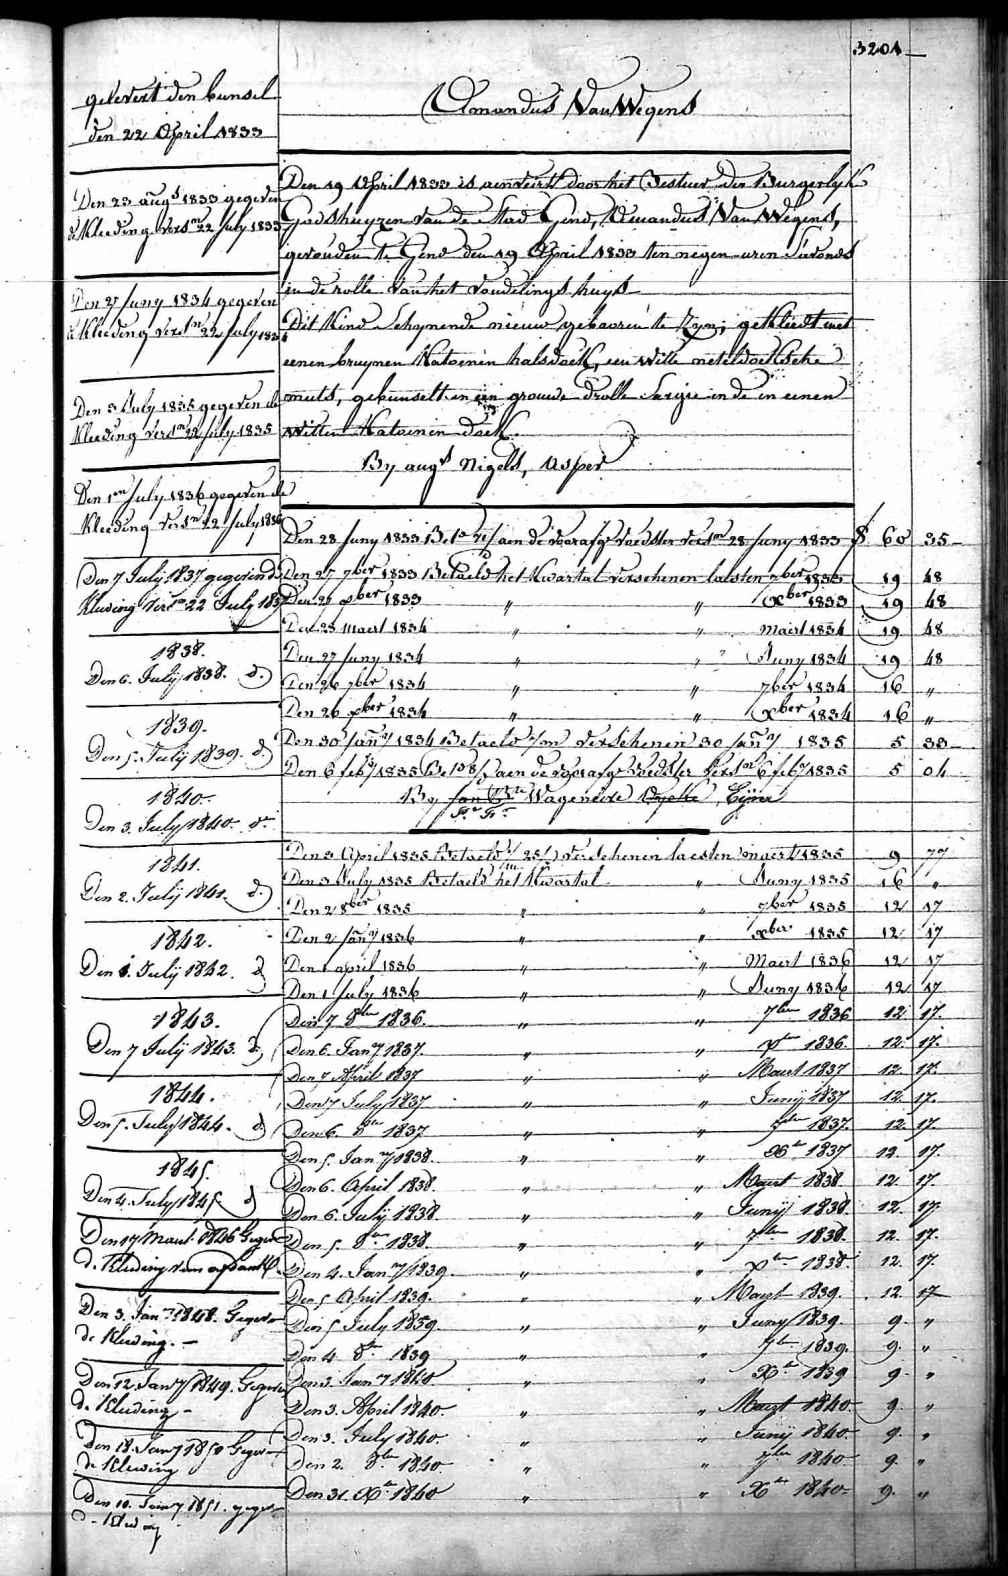 3204
Amandus Van Wegens
gelevert den bunsel
den 22 April 1833
Den 23 augs 1833 gegeven
de Kleeding vers.n 22 July 1833
Den 27 Juny 1834 gegeven
de Kleeding vers.n 22 July 1834
Den 3 July 1835 gegeven de
Kleeding vers.n 22 July 1835
Den 1en July 1836 gegeven de
Kleeding vers.n 22 July 1836
Den 7 July 1837 gegeven de
Kleeding vers.n 22 July 1837
1838.
Den 6. July 1838. d.
1839.
Den 5. July 1839. d.
1840.
Den 3. July 1840. d.
1841.
Den 2. July 1841. d.
1842.
Den 1. July 1842. d
1843.
Den 7 July 1843. d
1844.
Den 5. July 1844. d
1845.
Den 4. July 1845. d
Den 17 Maart 1846 Gegeven
d. Kleeding van
Den 3. Jan.y 1848. Gegeven
de Kleeding.
Den 12. Jany 1849. Gegeven
d. Kleeding
Den 18. Jany 1850 Gegeven
de Kleeding
Den 10. Jany 1851. gegeven
d. Kleeding
Den 19 April 1833 is aenveirt door het Bestier der Burgerlyk
Godshuyzen van de Stad Gend, Amandus Van Wegens,
gevonden te Gend den 19 April 1833 ten negen uren S'avonds
in de rolle van het vondelings huys
Dit Kind Schynende nieuw gebooren te Zyn; gekleedt met
eenen bruynen Katoenen halsdoek, een witte neteldoeksche
muts, gebunselt in een grouwe drolle Sergie in de in eenen
witten Katoenen doek.
By augt Nigels, Asper
Den 28 Juny 1833 aen de voorafge voedster vers.n 28 Juny 1833 f 60 35
Den 27 7ber 1833 Betaeld het Kwartal verschenen laesten 7ber 1833 19 48
Den 27 xber 1833 " " xber 1833 19 48
Den 25 maert 1834 " " maert 1834 19 48
Den 27 Juny 1834 " " Juny 1834 19 48
Den 26 7ber 1834 " " 7ber 1834 16 "
Den 26 xber 1834 " " xber 1834 16 "
Den 30 Jany 1834 Betaeld 1/m verschenen 30 Jany 1835 5 33
Den 6 feby 1835 aen de voorafge voedster vers.n 6 feby 1835 5 04
By Wageneire Eyne
Den 3 April 1835 Betaeld verschenen laesten maert 1835 9 77
Den 3 July 1835 Betaeld het Kwartal " Juny 1835 16 "
Den 2 8ber 1835 " " 7ber 1835 12 17
Den 2 Jany 1836 " " xber 1835 12 17
Den 1 april 1836 " " Maert 1836 12 17
Den 1 July 1836 " " Juny 1836 12 17
Den 7 8ber 1836. " " 7ber 1836 12 17.
Den 6. Jany 1837. " " Xer 1836 12. 17.
Den 7 April 1837 " " Maert 1837 12. 17.
Den 7 July 1837 " " Juny 1837 12. 17.
Den 6. 8ber 1837 " " 7ber 1837. 12. 17.
Den 5. Jany 1838. " " Xer 1837 12. 17.
Den 6. April 1838. " " Maert 1838 12. 17.
Den 6. July 1838. " " Juny 1838 12. 17.
Den 5. 8er 1838. " " 7ber 1838. 12. 17.
Den 4. Jany 1839. " " Xer 1838. 12. 17.
Den 5 April 1839. " " Maert 1839. 12 17
Den 5 July 1839. " " Juny 1839. 9. "
Den 4. 8er 1839 " " 7ber 1839. 9. "
Den 3. Jany 1840 " " Xer 1839 9. "
Den 3. April 1840. " " Maert 1840 9. "
Den 3. July 1840. " " Juny 1840 9. "
Den 2. 8ber 1840. " " 7ber 1840 9. "
Den 31. Xer 1840 " " Xer 1840. 9. "